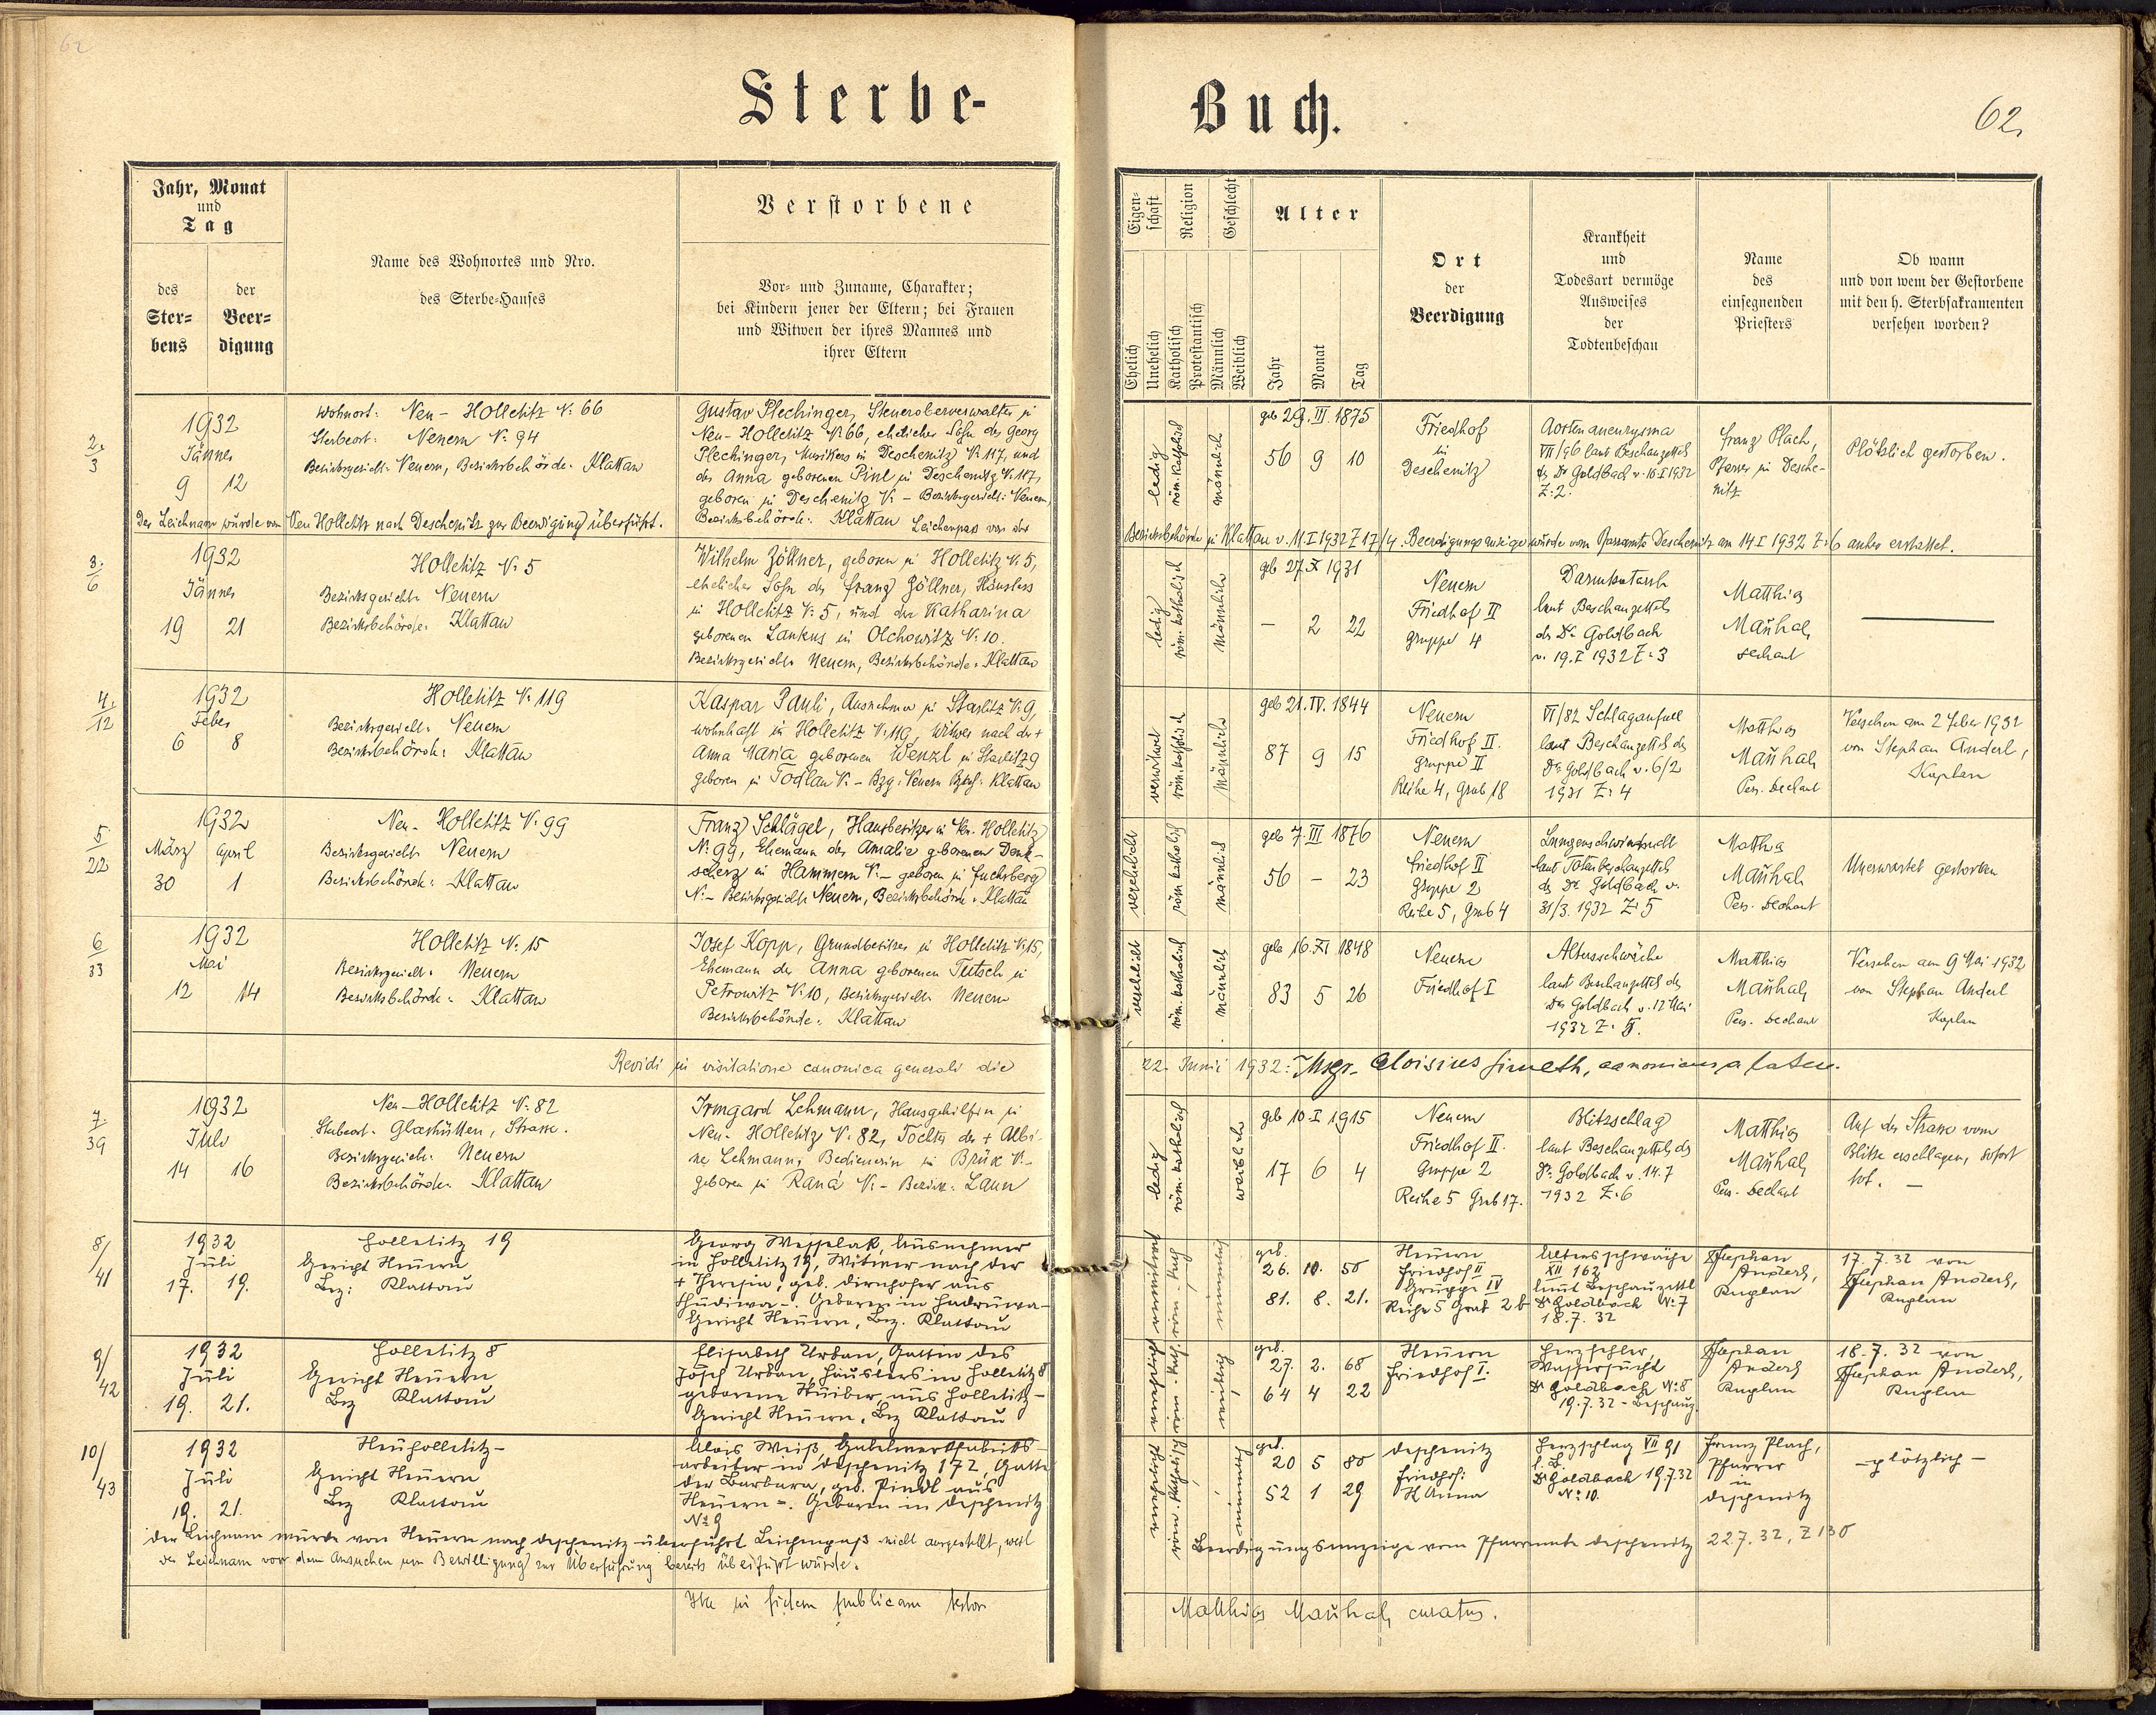 62
Sterbe-
Buch.
62.
Jahr, Monat
und
Tag
des
Ster-
bens
der
Beer-
digung
Name des Wohnortes und Nro.
des Sterbe-Hauses
Verstorbene
Vor- und Zuname, Charakter;
bei Kindern jener der Eltern; bei Frauen
und Witwen der ihres Mannes und
ihrer Eltern
Eigen-
schaft
Ehelich
Unehelich
Religion
Katholisch
Protestantisch
Geschlecht
Männlich
Weiblich
Alter
Jahr
Monat
Tag
Ort
der
Beerdigung
Krankheit
und
Todesart vermöge
Ausweises
der
Todtenbeschau
Name
des
einsegnenden
Priesters
Ob wann
und von wem der Gestorbene
mit den h. Sterbsakramenten
versehen worden?
2.
3
1932
Jänner
9 12
Wohnort: Neu-Holletitz N: 66
Sterbeort: Neuern N: 94
Bezirksgericht: Neuern, Bezirksbehörde: Klattau
Gustav Plechinger, Steueroberverwalter in
Neu-Holletitz N: 66, ehelicher Sohn des Georg
Plechinger, Musikers in Deschenitz N: 117, und
der Anna geborenen Pinl in Deschenitz N: 117,
geboren in Deschenitz N: - Bezirksgericht: Neuern,
Bezirksbehörde: Klattau Leichenpass von der
ledig
röm. katholisch
männlich
geb 29. III. 1875
56 9 10
Friedhof
in
Deschenitz
Aortenaneurysma
VII/96 laut Beschauzettel
des Dr Goldbach v. 10.I 1932
Z: 2.
Franz Plach,
Pfarrer in Desche-
nitz
Plötzlich gestorben.
Der Leichnam wurde von Neu Holletitz nach Deschenitz zur Beerdigung überführt.
Bezirksbehörde in Klattau v. 11.I 1932 Z 17/4. Beerdigungsanzeige wurde vom Pfarramte Deschenitz am 14 I 1932 Z: 6 anher erstattet.
3.
6
1932
Jänner
19 21
Holletitz N: 5
Bezirksgericht: Neuern
Bezirksbehörde: Klattau
Wilhelm Zöllner, geboren in Holletitz N: 5,
ehelicher Sohn des Franz Zöllner, Häuslers
in Holletitz N: 5, und der Katharina
geborenen Laukus in Olchowitz N: 10.
Bezirksgericht: Neuern, Bezirksbehörde: Klattau
ledig
röm. katholisch
männlich
geb 27. X 1931
- 2 22
Neuern
Friedhof II
Gruppe 4
Darmkatarrh
laut Beschauzettels
des Dr. Goldbach
v. 19. I 1932 Z: 3
Matthias
Mauhal,
Dechant
4.
12
1932
Feber
6 8
Holletitz N: 119
Bezirksgericht: Neuern
Bezirksbehörde: Klattau
Kaspar Pauli, Ausnehmer in Starlitz N: 9,
wohnhaft in Holletitz N: 119, Witwer nach der +
Anna Maria geborenen Wenzl in Starlitz 9
geboren in Todlau N: - Bzg: Neuern Bzbh: Klattau
verwitwet
röm. katholisch
männlich
geb 21. IV. 1844
87 9 15
Neuern
Friedhof II.
Gruppe II
Reihe 4, Grab 18
VI/82 Schlaganfall
laut Beschauzettel des
Dr Goldbach v. 6/2
1931 Z: 4
Matthias
Mauhal,
Pers. Dechant
Versehen am 2 Feber 1932
von Stephan Anderl,
Kaplan
5.
22
1932
März April
30 1
Neu-Holletitz N: 99
Bezirksgericht: Neuern
Bezirksbehörde: Klattau
Franz Schlägel, Hausbesitzer in Neu-Holletitz
N: 99, Ehemann der Amalie geborenen Denk-
scherz in Hammern N: - geboren in Fuchsberg
N: - Bezirksgericht: Neuern, Bezirksbehörde: Klattau
verehelicht
röm. katholisch
männlich
geb 7. III 1876
56 - 23
Neuern
Friedhof II
Gruppe 2
Reihe 5, Grab 4
Lungenschwindsucht
laut Totenbeschauzettel
des Dr. Goldbach v.
31/3. 1932 Z: 5
Matthias
Mauhal
Pers. Dechant
Unerwartet gestorben
6
33
1932
Mai
12 14
Holletitz N: 15
Bezirksgericht: Neuern
Bezirksbehörde: Klattau
Josef Kopp, Grundbesitzer in Holletitz N: 15,
Ehemann der Anna geborenen Tutsch in
Petrowitz N: 10, Bezirksgericht: Neuern
Bezirksbehörde: Klattau
verehelicht
röm. katholisch
männlich
geb 16. XI 1848
83 5 26
Neuern
Friedhof I
Altersschwäche
laut Beschauzettel des
Dr Goldbach v. 12 Mai
1932 Z:
Matthias
Mauhal,
Pers. Dechant
Versehen am 9 Mai 1932
von Stephan Anderl
Kaplan
Revidi in visitatione canonica generali die
22. Junii 1932: Msgr. Aloisius
7
39
1932
Juli
14 16
Neu-Holletitz N: 82
Sterbeort: Glashütten, Strasse.
Bezirksgericht: Neuern
Bezirksbehörde: Klattau
Irmgard Lehmann, Hausgehilfin in
Neu-Holletitz N: 82, Tochter der + Albi-
ne Lehmann, Bedienerin in Brüx N: -
geboren in Raná N: - Bezirk: Laun
ledig
röm. katholisch
weiblich
geb 10. I 1915
17 6 4
Neuern
Friedhof II.
Gruppe 2
Reihe 5 Grab 17.
Blitzschlag
laut Beschauzettel des
Dr. Goldbach v. 14. 7
1932 Z: 6
Matthias
Mauhal,
Pers. Dechant
Auf der Strasse vom
Blitze erschlagen, sofort
tot. -
8/
41
1932
Juli
17. 19.
Holletitz 19
Gericht Neuern
Bez: Klattau
Georg Wesselak, Ausnehmer
in Holletitz 19, Witwer nach der
+ Theresia, geb. Dirnhofer aus
Chudiwa -. Geboren in Hadruwa -
Gericht Neuern, Bez. Klattau
verwitwet
röm. kath
männlich
geb.
26. 10. 50
81. 8. 21.
Neuern
Friedhof II
Gruppe IV
Reihe 5 Grab 2b
Altersschwäche
XII 162
laut Beschauzettl
Dr Goldbach No 7
18. 7. 32
Stephan
Anderl,
Kaplan
17. 7. 32 von
Stephan Anderl,
Kaplan
9/
42
1932
Juli
19. 21.
Holletitz 8
Gericht Neuern
Bez Klattau
Elisabeth Urban, Gattin des
Josef Urban, Häuslers in Holletitz 8
geborene aus Holletitz -
Gericht Neuern, Bez Klattau
verehelicht
röm. kath.
weiblich
geb.
27. 2. 68
64 4 22
Neuern
Friedhof I.
Herzfehler,
Wassersucht
Dr Goldbach No 8
19. 7. 32 - Beschauz.
Stephan
Anderl
Kaplan
18. 7. 32 von
Stephan Anderl,
Kaplan
10/
43
1932
Juli
19. 21.
Neuholletitz -
Gericht Neuern
Bez Klattau
Alois Weiß, Gabelwerkfabriks-
arbeiter in Deschenitz 172, Gatte
der Barbara, geb. Pindl aus
Neuern -. Geboren in Deschenitz
No 9
verehelicht
röm. katholisch
männlich
geb.
20 5 80
52 1 29
Deschenitz
Friedhof:
St Anna
Herzschlag VII 91
l. B.
Dr Goldbach 19.7.32
No 10.
Franz Plach,
Pfarrer
in
Deschenitz
- plötzlich -
Der Leichnam wurde von Neuern nach Deschenitz überführt Leichenpaß nicht ausgestellt, weil
der Leichnam vor dem Ansuchen um Bewilligung zur Überführung bereits überführt wurde.
Beerdigungsanzeige vom Pfarramte Deschenitz 22.7.32, Z 130
Ita in fidem publicam testor
Matthias Mauhal, curatus.